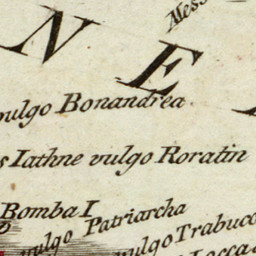 Mess
N E
vulgo Bonandrea
s Iathne vulgo Roratin
Bomba I
vulgo Patriarcha
vulgo Trabucc